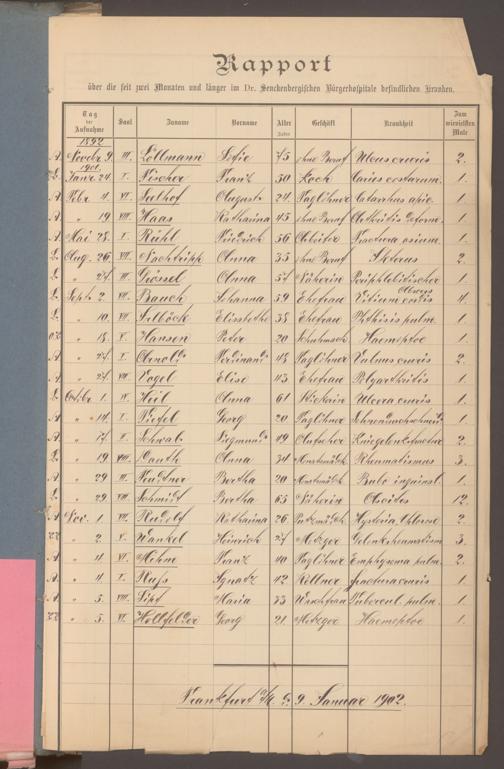 Rapport
über die seit zwei Monaten und länger im Dr. Senckenbergischen Bürgerhospitale befindlichen Kranken.
Tag der Aufnahme Saal Zuname Vorname Alter Jahre Geschäft Krankheit Zum wievielsten Male
1892
A. Novbr. 9. III. Löllmann Sofie 75 ohne Beruf Ulcus cruris 2.
1901.
L. Janr. 24. I. Fischer Franz 50 Koch Caries costarum. 1.
A. Febr. 4. VI. August 24. Taglöhner Catarrhus apic. 1.
A. " 19 VIII. Haas Katharina 45 ohne Beruf Arthritis deform. 1.
A. Mai 28. X. Rühl Friedrich 56 Arbeiter Fractura 1.
L. Aug. 26. VII. Anna 35 ohne Beruf Ikterus 2.
L. " 27. III. Anna 57 Näherin 1.
L. Septr. 2. VII. Bauch Johanna 59 Ehefrau Vitium cordis 4.
L. " 10. VII. Elisabethe 38 Ehefrau Phthisis pulm. 1.
" 18. X. Hansen Peter 20 Haemoptoe 1.
A. " 27. I. Arnold Ferdinand 48 Taglöhner cruris 2.
A. " 27. VII. Vogel Elise 43 Ehefrau Polyarthritis 1.
L. Octbr. 1. IV. Keil Anna 61 Ulcera cruris 1.
A. " 14. I. Georg 20 Taglöhner 1.
L. " 17. X. Schwab Siegmund 49 Kutscher 2.
L. " 19 VIII. Anna 34 Rheumatismus 3.
A. " 29 III. Bertha 20 Bubo inguinal. 1.
L. " 29 VIII. Schmidt Bertha 65 Näherin 12.
A. Nov. 1. VII. Rudolf Katharina 26. Hysteria, Chlorose 2.
" 2. X. Wankel Heinrich 27 Metzger Gelenkrheumatism 3.
A. " 4 VI. Mehm Franz 40 Taglöhner Emphysema pulm. 2.
A. " 4 X. Ruß Ignatz 42 Kellner Fractura cruris 1.
A. " 5. VIII. Maria 33 Tubercul. pulm. 1.
" 5. VI. Hollfelder Georg 21 Metzger Haemoptoe 1.
Frankfurt a/M. d. 9. Januar 1902.